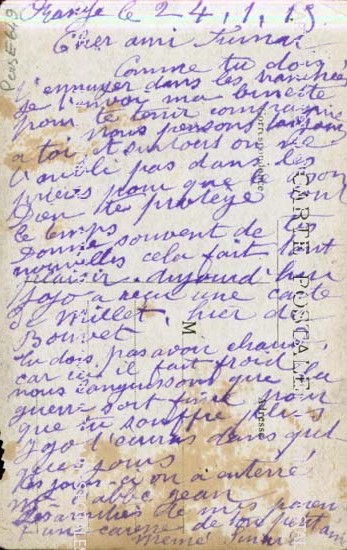 le 24, 1, 15.
Cher ami
Comme tu dois
t'ennuyer dans les tranchées
je t'envoi ma binette
pour te tenir compagnie
nous pensons toujours
a toi et surtout on ne
t'oubli pas dans les
prières pour que le bon
Dieu te protège
le temps
Donne souvent de tes
nouvelles cela fait tant
plaisir. aujourd'hui
Jojo a reçu une carte
de Millet, hier de
Bouvet
tu dois pas avoir chaud,
car ici il fait froid
nous languissons que la
guerre soit fini pour
que tu souffre plus
Jojo t'écrira dans quel
ques jours
Ces jours-ci on a enterré
Mr l'abbé Jean
Des amitiés de mes paren
t une caresse de ton petit am
CARTE POSTALE
Correspondance
Adresse
M